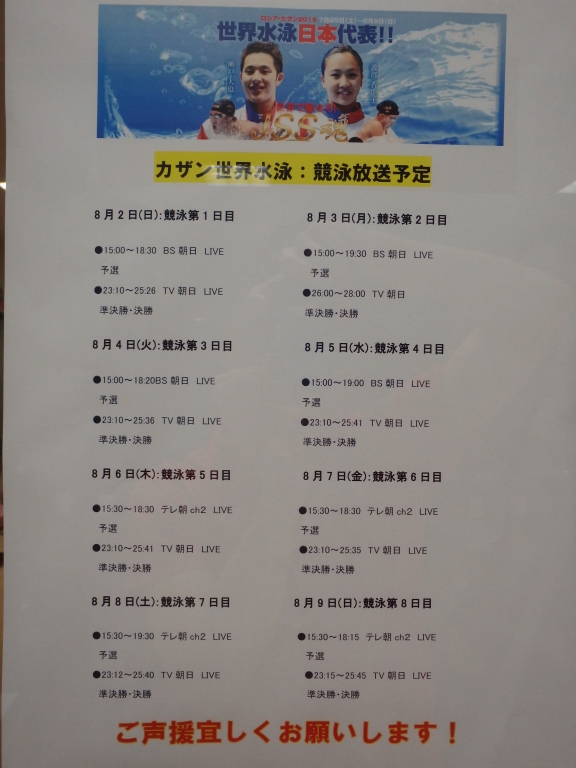 ロシア・カザン2015 7月25日(土)-8月9日(日)
世界水泳日本代表!!
JSS魂
カザン世界水泳：競泳放送予定
8月2日(日):競泳第1日目
●15:00～18:30 BS朝日 LIVE
予選
●23:10～25:26 TV朝日 LIVE
準決勝・決勝
8月3日(月):競泳第2日目
●15:00～19:30 BS朝日 LIVE
予選
●26:00～28:00 TV朝日
準決勝・決勝
8月4日(火):競泳第3日目
●15:00～18:20BS朝日 LIVE
予選
●23:10～25:36 TV朝日 LIVE
準決勝・決勝
8月5日(水):競泳第4日目
●15:00～19:00 BS朝日 LIVE
予選
●23:10～25:41 TV朝日 LIVE
準決勝・決勝
8月6日(木):競泳第5日目
●15:30～18:30 テレ朝ch2 LIVE
予選
●23:10～25:41 TV朝日 LIVE
準決勝・決勝
8月7日(金):競泳第6日目
●15:30～18:30 テレ朝ch2 LIVE
予選
●23:10～25:35 TV朝日 LIVE
準決勝・決勝
8月8日(土):競泳第7日目
●15:30～19:30 テレ朝ch2 LIVE
予選
●23:12～25:40 TV朝日 LIVE
準決勝・決勝
8月9日(日):競泳第8日目
●15:30～18:15 テレ朝ch2 LIVE
予選
●23:15～25:45 TV朝日 LIVE
準決勝・決勝
ご声援宜しくお願いします！